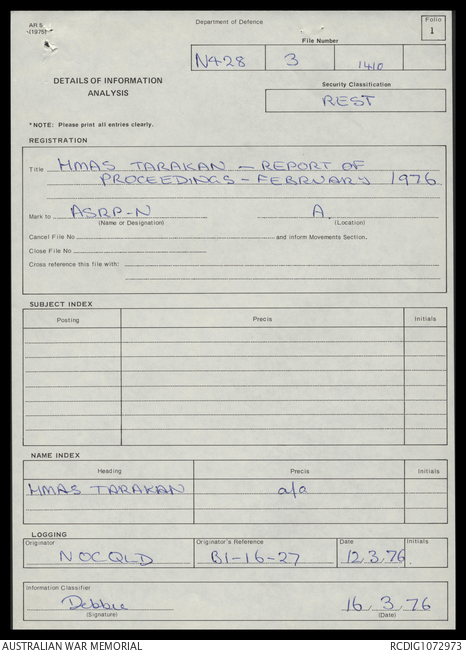 AR 5
(1975)
Department of Defence
Folio
1
File Number
N428 3 1410
DETAILS OF INFORMATION
ANALYSIS
Security Classification
REST
*NOTE: Please print all entries clearly.
REGISTRATION
Title HMAS TARAKAN — REPORT OF
PROCEEDINGS — FEBRUARY 1976
Mark to ASRP-N A
(Name or Designation) (Location)
Cancel File No and inform Movements Section.
Close File No
Cross reference this file with:
SUBJECT INDEX
Posting Precis Initials
NAME INDEX
Heading Precis Initials
HMAS TARAKAN a/a
LOGGING
Originator Originator's Reference Date Initials
NOCQLD B1-16-27 12.3.76
Information Classifier
Debbie 16.3.76
(Signature) (Date)
AUSTRALIAN WAR MEMORIAL RCDIG1072973